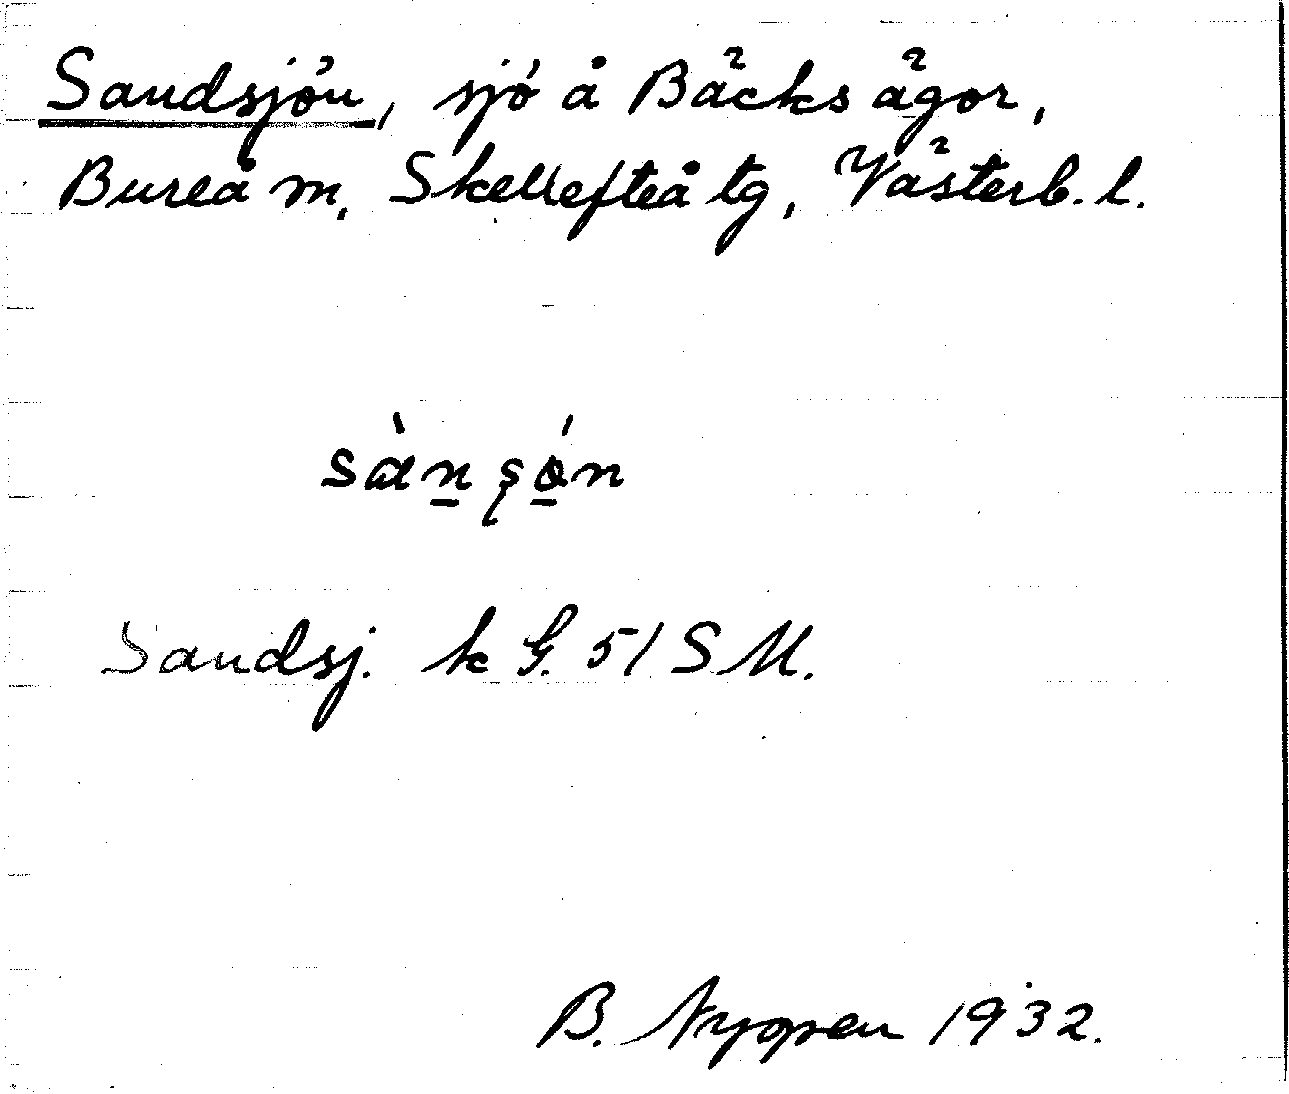 Sandsjön, sjö å Bäcks ägor,
Bureå m, Skellefteå tg, Västerb. l.
sàn̲ ʂǿ̲n
Sandsj. k G. 51 S M.
B. Nyopen 1932.